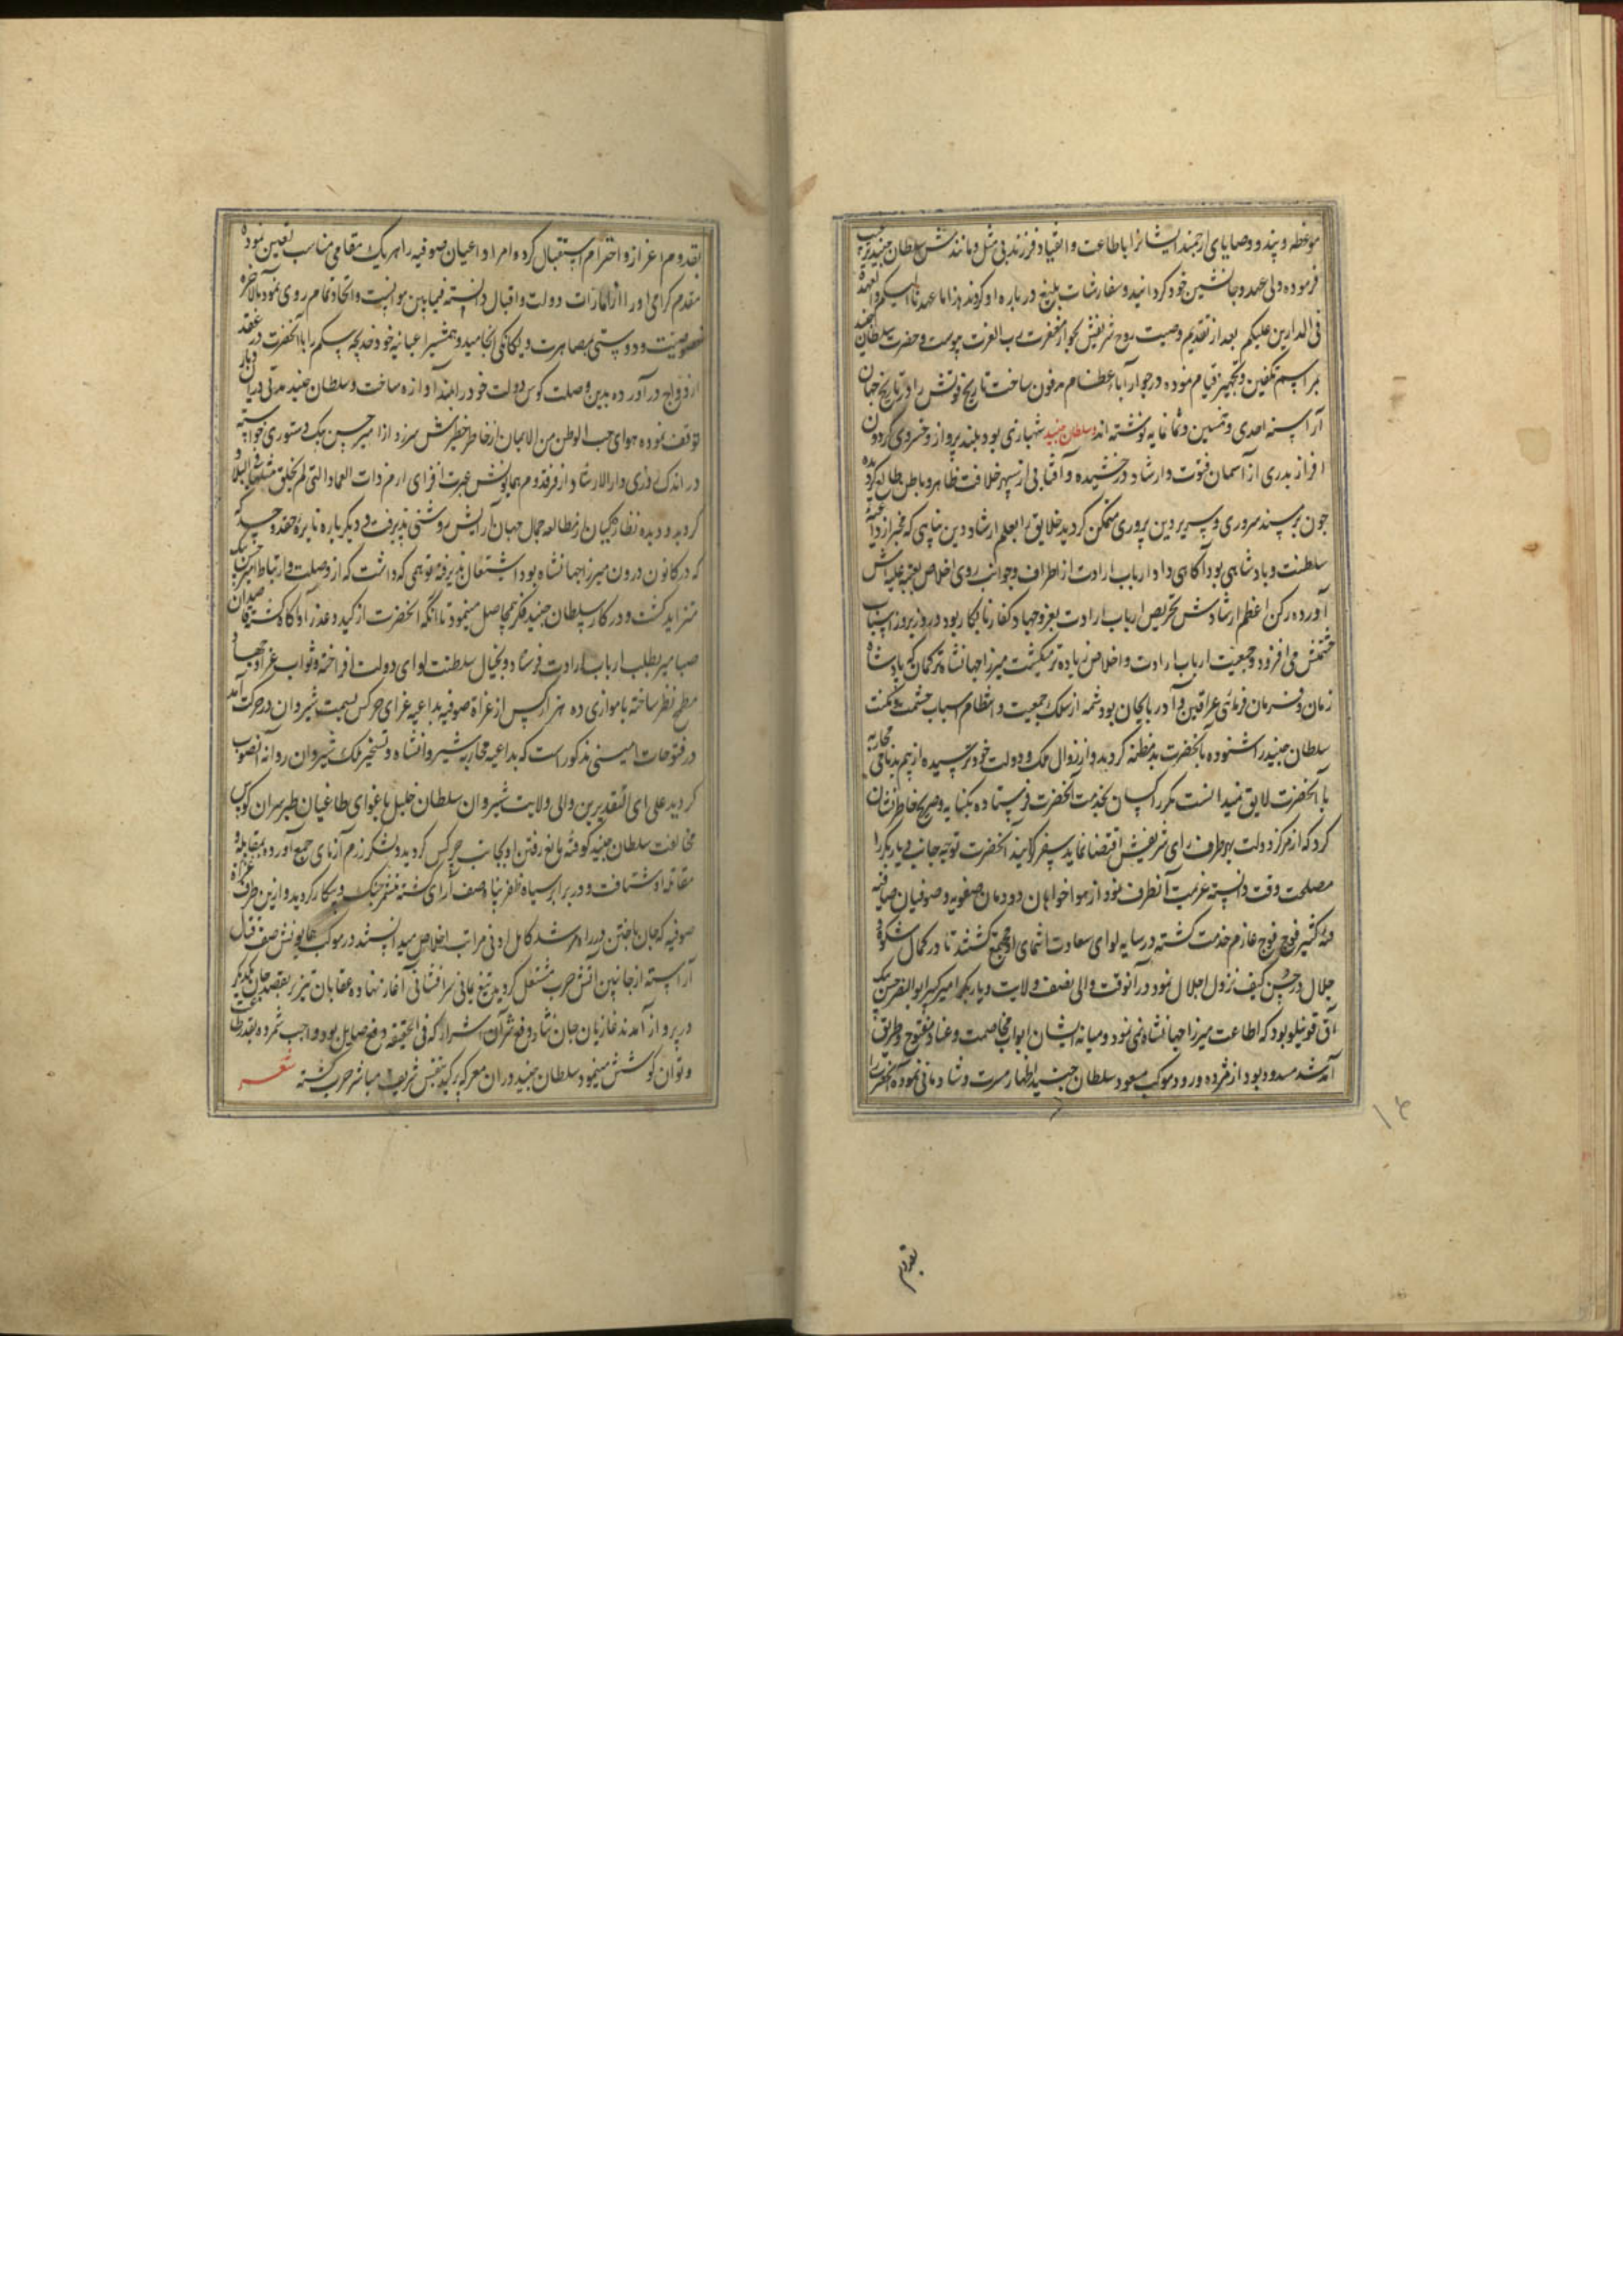 موعظه و پند و وصایای ارجمند ایشانرا باطاعت و انقیاد فرزند بی مثل و مانندش سلطان جنید ترغیب
فرموده ولی عهد و جانشین خود گردانید و سفارشات بلیغ درباره او کردند هذا ما عهدنا الیکم والعهدة
فی الدارین علیکم بعد از تقدیم وصیت روح شریفش بجوار مغفرت رب العزت پیوست و حضرت سلطان جنید
بمراسم تکفین و تجهیز قیام نموده در جوار آباء عظام مدفون ساخت تاریخ فوتش را در تاریخ جهان
آرا سنه احدی و خمسین و ثمانمایه نوشته اند سلطان جنید شهبازی بود بلند پرواز و خسروی گردون
افراز بدری از آسمان فتوت و ارشاد درخشیده و آفتابی از سپهر خلافت ظاهر و باطن طالع گردیده
چون بر مسند سروری و سریر دین پروری متمکن گردید خلایق را بعلم ارشاد دین پناهی که مخبر از داعیه
سلطنت و پادشاهی بود آگاهی داد ارباب ارادت از اطراف و جوانب روی اخلاص بعتبه علیه اش
آورده رکن اعظم ارشادش تحریص ارباب ارادت بغزو جهاد کفار نابکار بود و روز بروز اسباب
حشمتش می افزود و جمعیت ارباب ارادت و اخلاص زیاده تر میگشت میرزا جهانشاه ترکمان که پادشاه
زمان و فرمان فرمای عراقین و آذربایجان بود شمه از سلک جمعیت و انتظام اسباب حشمت و مکنت
سلطان جنید را شنوده بآنحضرت بدمظنه گردید و از زوال ملک و دولت خود ترسیده از بیم بدنامی محاربه
با آنحضرت لایق نمیدانست مکرر کسان بخدمت آنحضرت فرستاده بکنایه و صریح خاطرنشان
کرد که از مرکز دولت بهر طرف رای شریفش اقتضا نماید سفر گزیند آنحضرت توجه جانب دیاربکر را
مصلحت وقت دانسته عزیمت آنطرف نمود از هواخواهان دودمان صفویه و صوفیان صافیه
فئه کثیر فوج فوج عازم خدمت گشته در سایه لوای سعادت انتمای او مجتمع گشتند تا در کمال شکوه و
جلال در حصن کیف نزول اجلال نمود در آنوقت والی نصف ولایت دیاربکر امیر کبیر ابوالنصر حسن بیک
آق قوینلو بود که اطاعت میرزا جهانشاه نمی نمود و میانه ایشان ابواب مخاصمت و عناد مفتوح و طریق
آمد شد مسدود بود از مژده ورود موکب مسعود سلطان جنید اظهار مسرت و شادمانی نموده آنحضرت را
۱۴
بقدوم
بقدوم اعزاز و احترام استقبال کرده امرا و اعیان صوفیه را هر یک مقامی مناسب تعیین نموده
مقدم گرامی او را از امارات دولت و اقبال دانسته فیمابین موانست و اتحاد تمام روی نمود بالاخره
خصوصیت و دوستی بمصاهرت و یگانگی انجامید و همشیر اعیانیه خود خدیجه بیگم را با آنحضرت در عقد
ازدواج درآورده بدین وصلت کوس دولت خود را بلند آوازه ساخت و سلطان جنید مدتی در آن دیار
توقف نموده هوای حب الوطن من الایمان از خاطر خطیرش سرزد از امیر حسن بیک دستوری خواسته
در اندک روزی دار الارشاد از فر قدوم همایونش عبرت افزای ارم ذات العماد التی لم یخلق مثلها فی البلاد
گردید و دیده نظارگیان از مطالعه جمال جهان آرایش روشنی پذیرفت و دیگر باره نایره حقد و حسد که
که در کانون درون میرزا جهانشاه بود اشتعال پذیرفته توهمی که داشت که از وصلت و ارتباط امیر حسن بیک
متزاید گشت و در کار سلطان جنید فکر بیحاصل مینمود تا آنکه آنحضرت از کید و غدر او آگاه گشته قاصدان
صبا مسیر بطلب ارباب ارادت فرستاد و بخیال سلطنت لوای دولت افراخته و ثواب غزا و جهاد
مطمح نظر ساخته با موازی ده هزار کس از غزاة صوفیه بداعیه غزای چرکس بسمت شیروان در حرکت آمد
در فتوحات امینی مذکور است که بداعیه محاربه شیروانشاه و تسخیر ملک شیروان روانه آنصوب
گردید علی ای التقدیرین والی ولایت شیروان سلطان خلیل باغوای طاغیان طبرسران کوس
مخالفت سلطان جنید کوفته مانع رفتن او بجانب چرکس گردید و لشکر رزم آزمای جمع آورده بمقابله و
مقاتله او شتافت و در برابر سپاه ظفرپناه صف آرای گشته متشمر جنگ و پیکار گردید و ازین طرف غزاة
صوفیه که جان باختن در راه مرشد کامل ادنی مراتب اخلاص میدانستند در موکب همایونش صف قتال
آراسته از جانبین آتش حرب مشتعل گردید تیغ یمانی سرافشانی آغاز نهاده عقابان تیز پر بقصد جان یکدیگر
در پرواز آمدند غازیان جان نثار دفع شر آن اشرار که فی الحقیقه دفع صایل بود واجب شمرده بقدر طاقت
و توان کوشش مینمود سلطان جنید در آن معرکه گیر بنفس شریف مباشر حرب گشته شعر